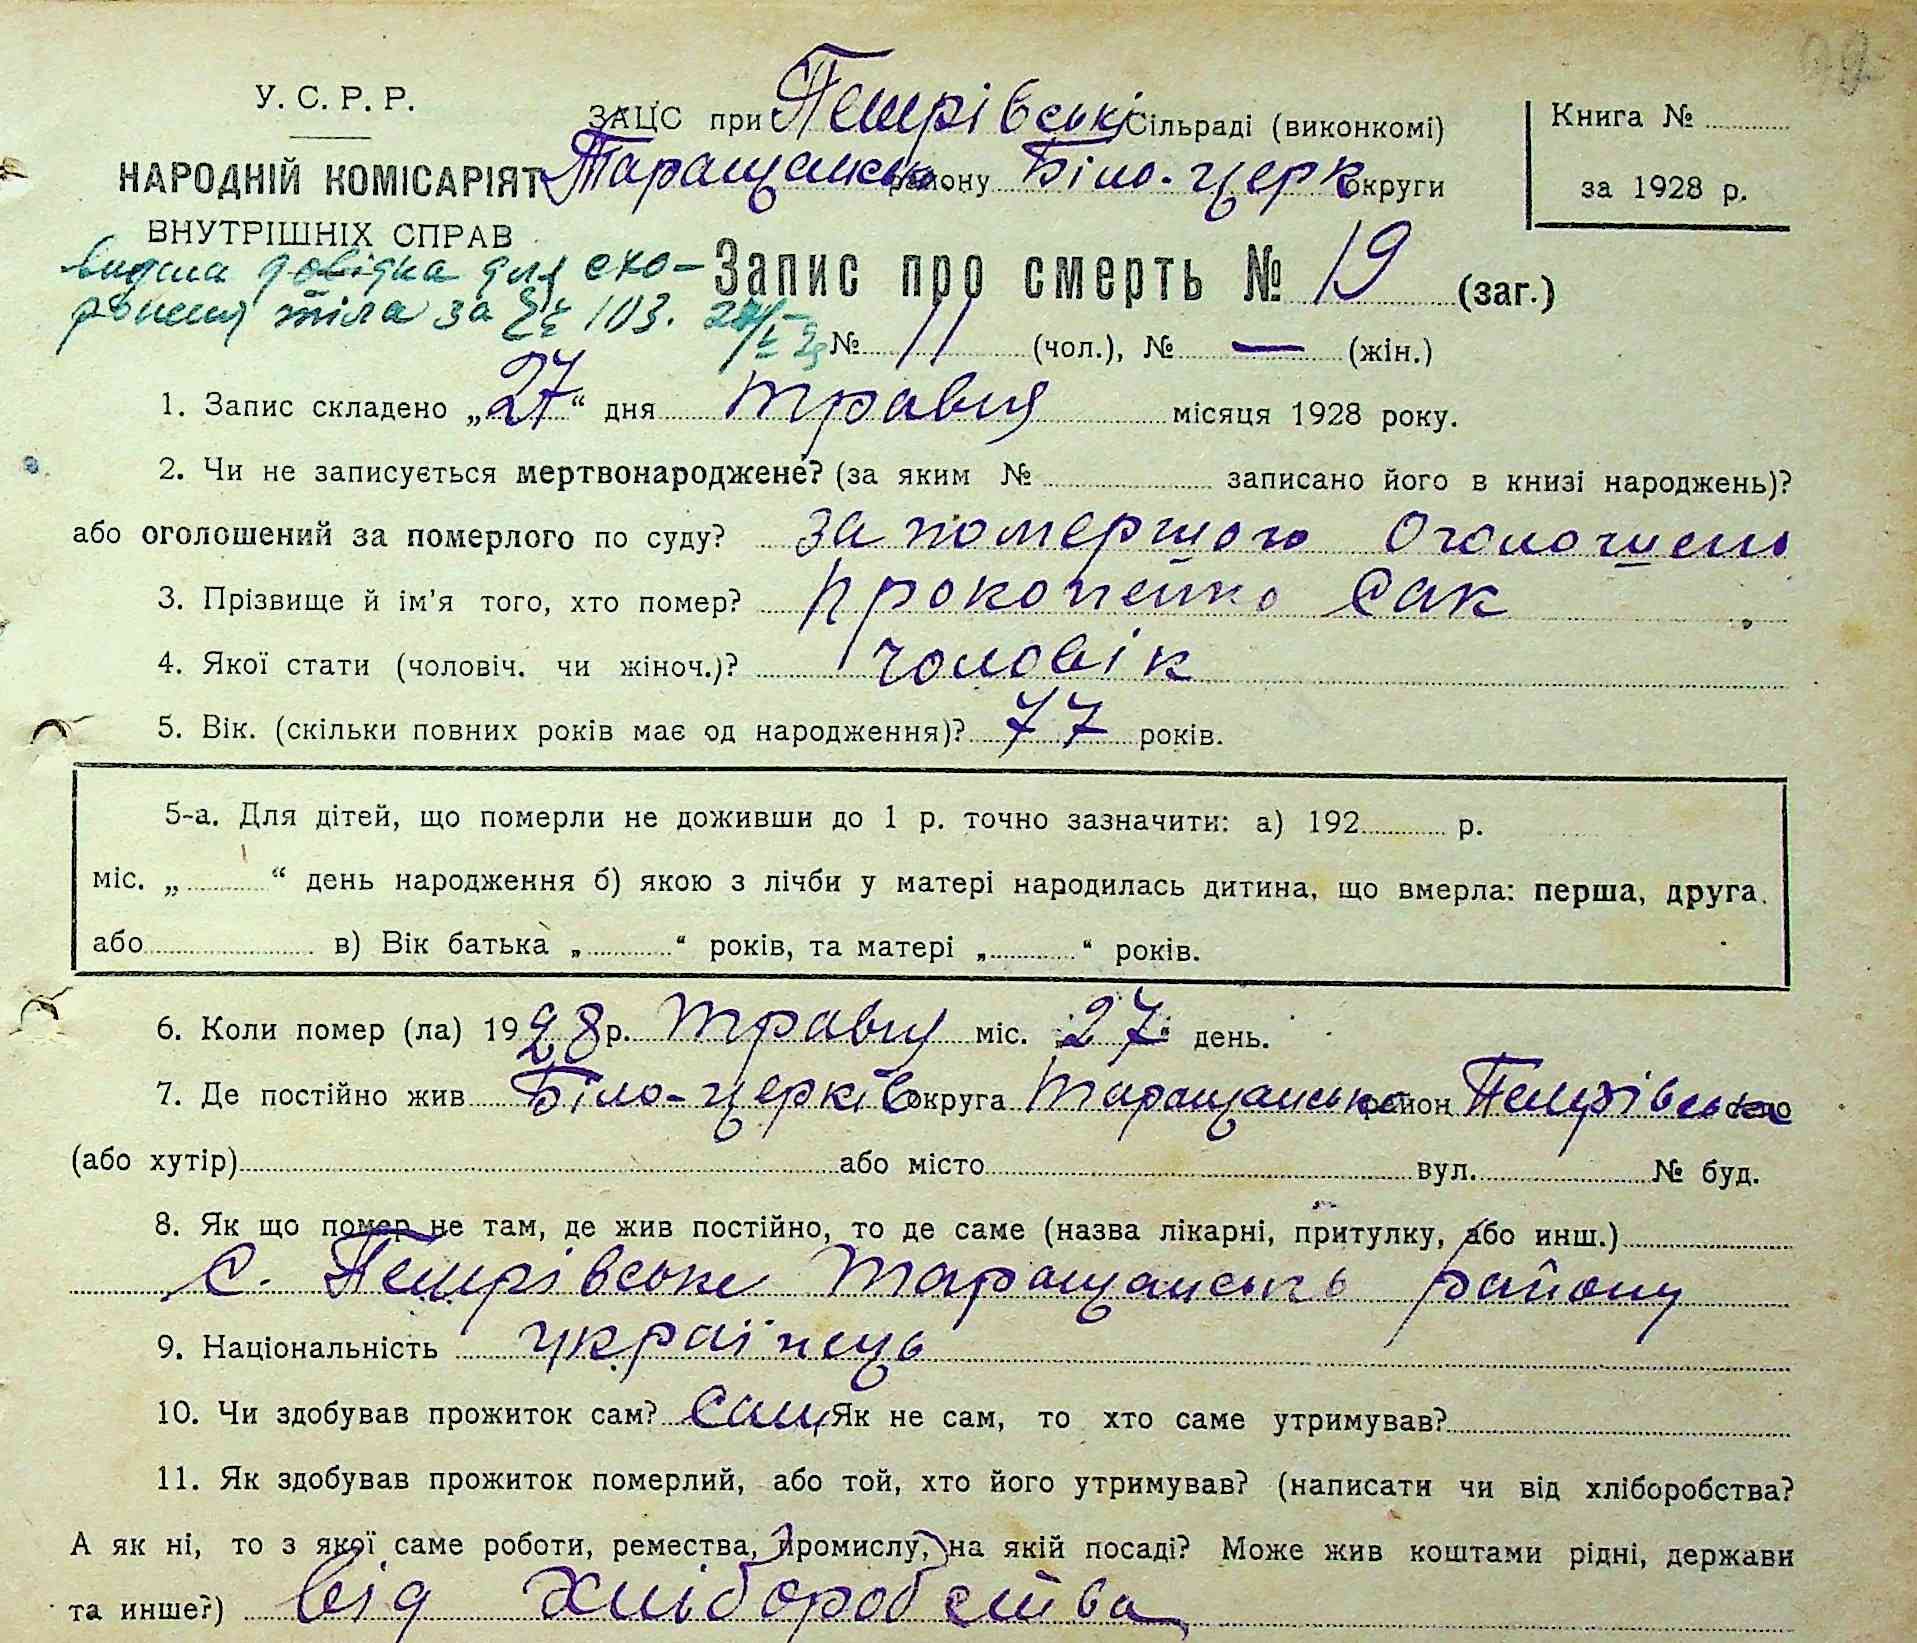 У. С. Р. Р.
НАРОДНІЙ КОМІСАРІЯТ
ВНУТРІШНІХ СПРАВ
видана довідка для схо-
ронення тіла за № 103.
ЗАЦС при Петрівські сільраді (виконкомі)
Таращанськ району Біло-церк округи
Книга №
за 1928 р.
Запис про смерть № 19 (заг.)
№ 11 (чол.), № — (жін.)
1. Запис складено „27“ дня травня місяця 1928 року.
2. Чи не записується мертвонароджене? (за яким № записано його в книзі народжень)?
або оголошений за померлого по суду? за помершого оголошень
3. Прізвище й ім'я того, хто помер? Прокопенко Сак
4. Якої стати (чоловіч. чи жіноч.)? чоловік
5. Вік. (скільки повних років має од народження)? 77 років.
5-а. Для дітей, що померли не доживши до 1 р. точно зазначити: а) 192 р.
міс. „ “ день народження б) якою з лічби у матері народилась дитина, що вмерла: перша, друга.
або в) Вік батька „ “ років, та матері „ “ років.
6. Коли помер (ла) 1928 р. травня міс. 27 день.
7. Де постійно жив Біло-церків округа Таращанське район Петрівське село
(або хутір) або місто вул. № буд.
8. Як що помер не там, де жив постійно, то де саме (назва лікарні, притулку, або инш.)
с. Петрівське Таращанськ району
9. Національність українець
10. Чи здобував прожиток сам? сам Як не сам, то хто саме утримував?
11. Як здобував прожиток померлий, або той, хто його утримував? (написати чи від хліборобства?
А як ні, то з якої саме роботи, ремества, промислу, на якій посаді? Може жив коштами рідні, держави
та инше?) від хліборобства